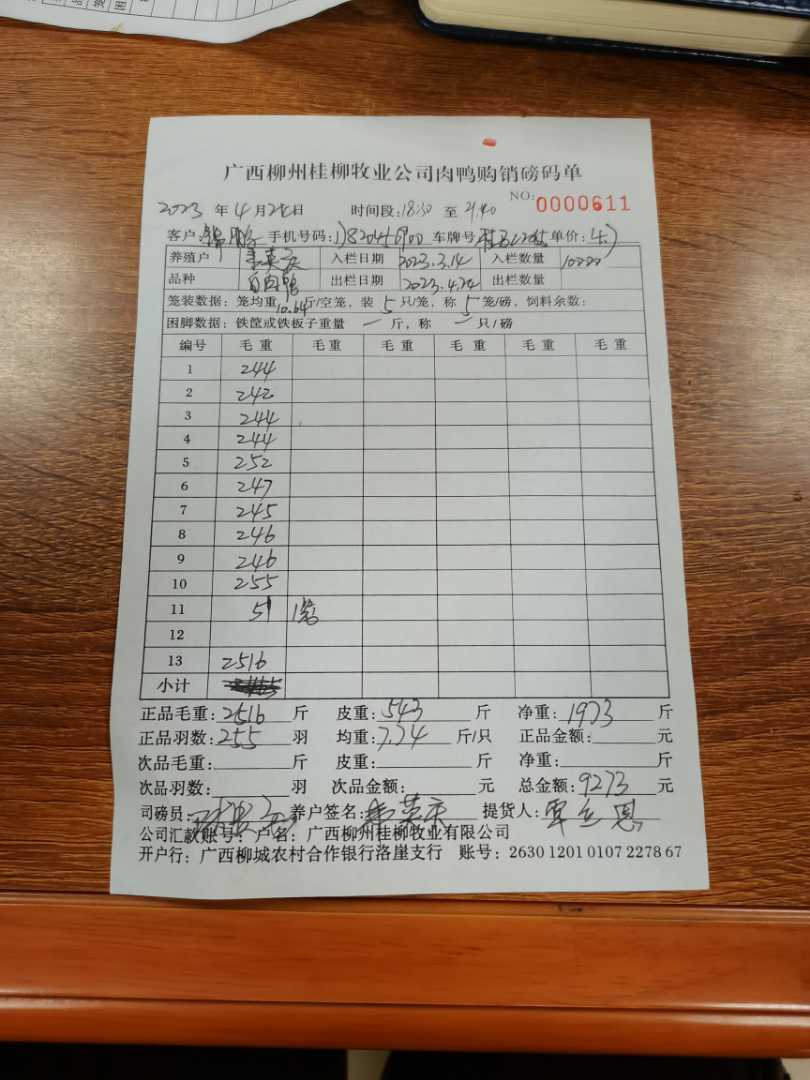 广西柳州桂柳牧业公司肉鸭购销磅码单
NO: 0000611
2023 年 4 月 24 日 时间段: 18:30 至 21:40
客户: 锦鹏 手机号码: 车牌号: 单价: 4.7
养殖户 韦英庆 入栏日期 2023.3.14 入栏数量
品种 白肉鸭 出栏日期 2023.4.24 出栏数量
笼装数据: 笼均重 10.64 斤/空笼, 装 5 只/笼, 称 5 笼/磅, 饲料余数:
困脚数据: 铁筐或铁板子重量 一 斤, 称 一 只/磅
编号 毛重 毛重 毛重 毛重 毛重 毛重
1 244
2 242
3 244
4 244
5 252
6 247
7 245
8 246
9 246
10 255
11 51 1笼
12
13 2516
小计
正品毛重: 2516 斤 皮重: 543 斤 净重: 1973 斤
正品羽数: 255 羽 均重: 7.74 斤/只 正品金额: 元
次品毛重: 斤 皮重: 斤 净重: 斤
次品羽数: 羽 次品金额: 元 总金额: 9273 元
司磅员: 养户签名: 韦英庆 提货人: 覃立恩
公司汇款账号: 户名: 广西柳州桂柳牧业有限公司
开户行: 广西柳城农村合作银行洛崖支行 账号: 2630 1201 0107 2278 67